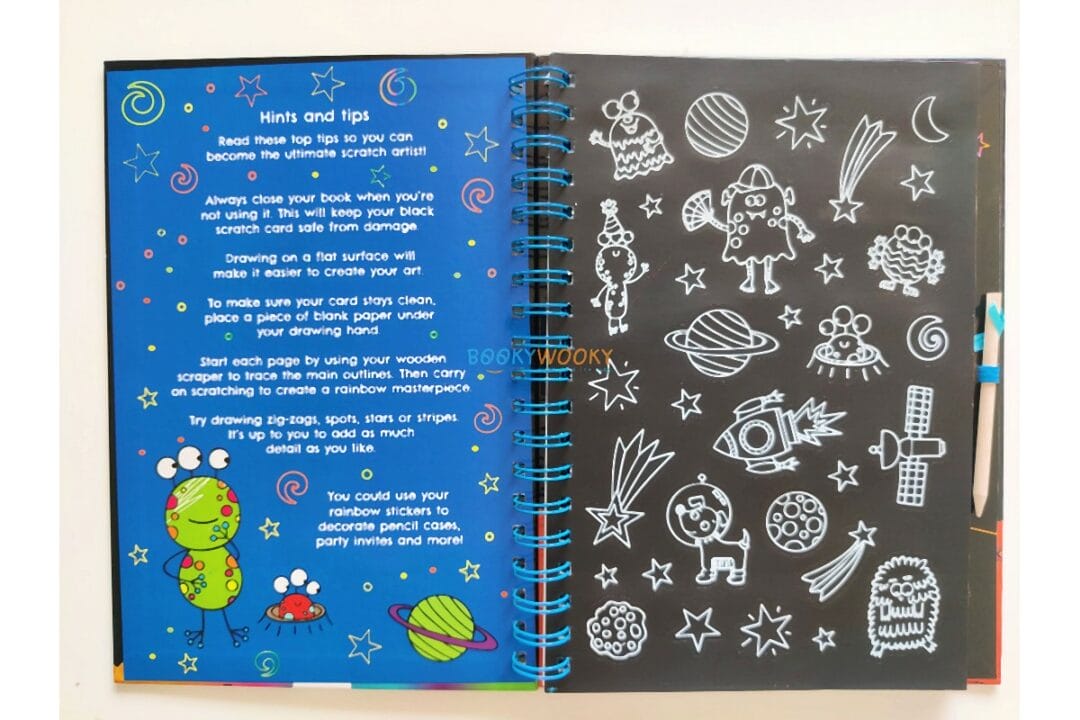 Hints and tips
Read these top tips so you can
become the ultimate scratch artist!
Always close your book when you're
not using it. This will keep your black
scratch card safe from damage.
Drawing on a flat surface will
make it easier to create your art.
To make sure your card stays clean,
place a piece of blank paper under
your drawing hand.
Start each page by using your wooden
scraper to trace the main outlines. Then carry
on scratching to create a rainbow masterpiece.
Try drawing zig-zags, spots, stars or stripes.
It's up to you to add as much
detail as you like.
You could use your
rainbow stickers to
decorate pencil cases,
party invites and more!
BOOKYWOOKY